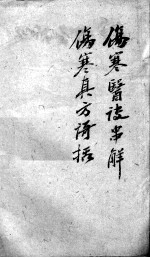 傷寒醫訣串解
傷寒真方謌括